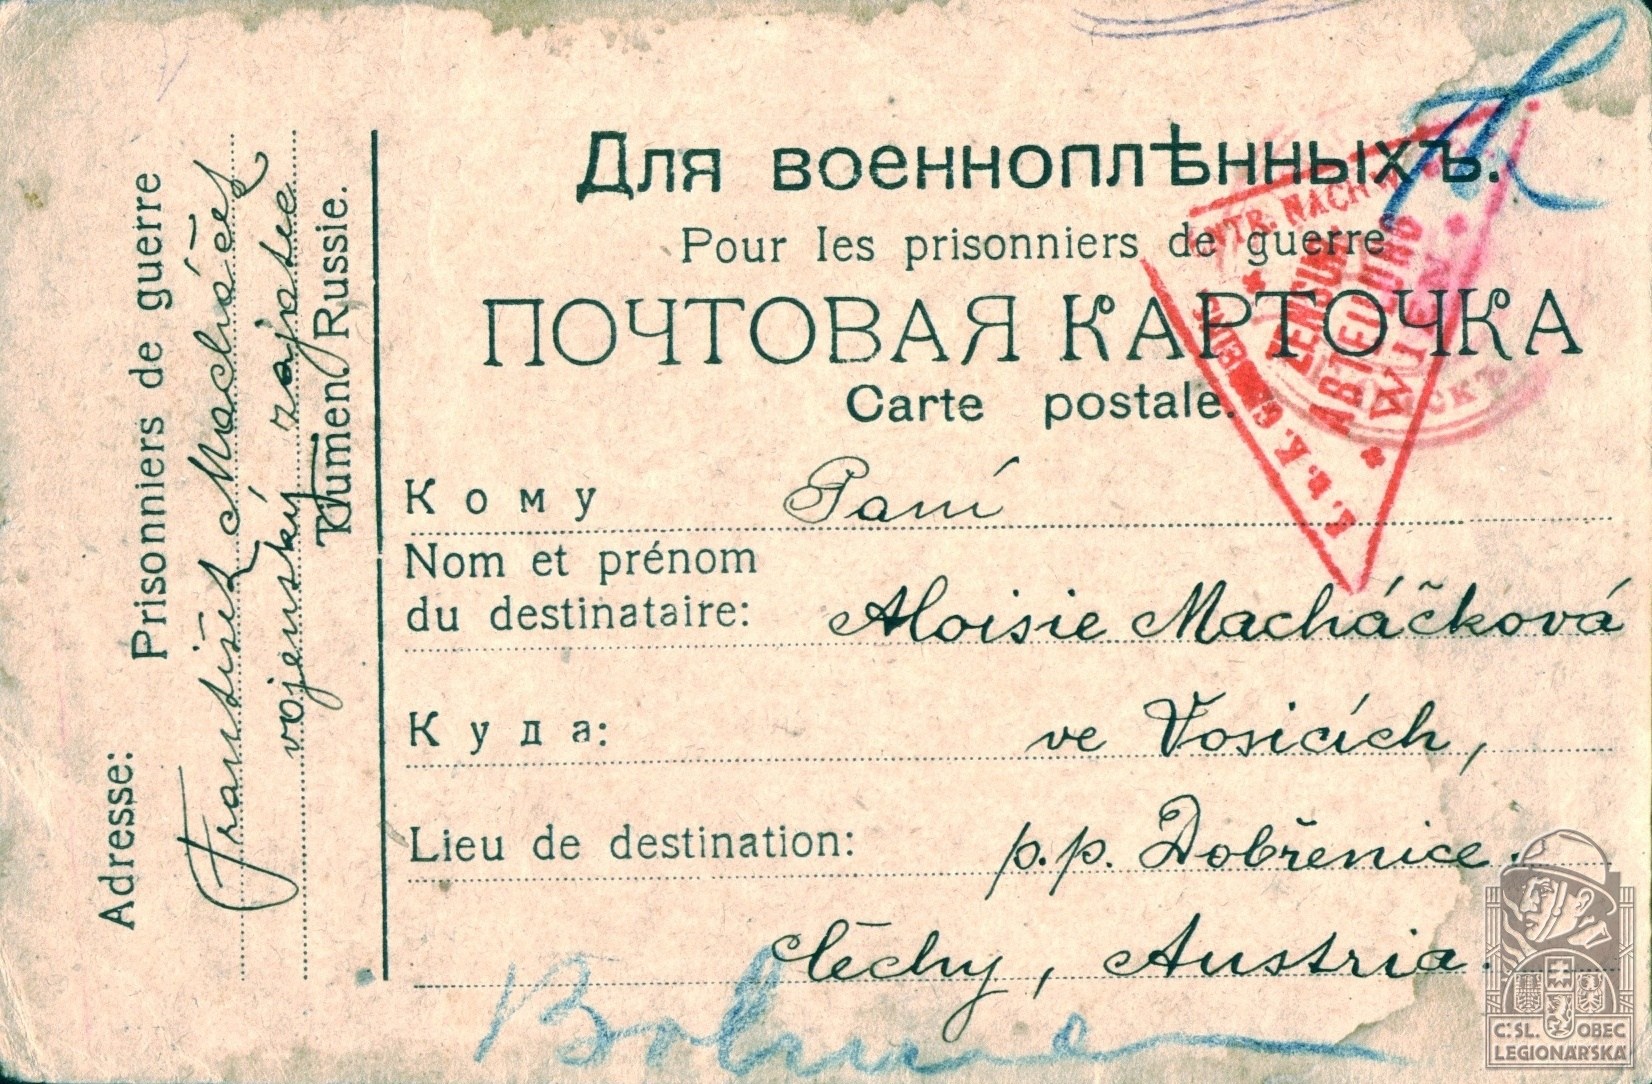 Для военноплѣнныхъ.
Pour les prisonniers de guerre
ПОЧТОВАЯ КАРТОЧКА
Carte postale.
Кому Paní
Nom et prénom
du destinataire: Aloisie Macháčková
Куда: ve Vosicích,
Lieu de destination: p.p. Dobřenice.
Čechy, Austria.
Adresse:
Prisonniers de guerre
František Macháček
vojenský zajatec
Tiumen Russie.
ZENSUR
ABTEILUNG
WIEN
C:SL. OBEC
LEGIONÁRSKÁ